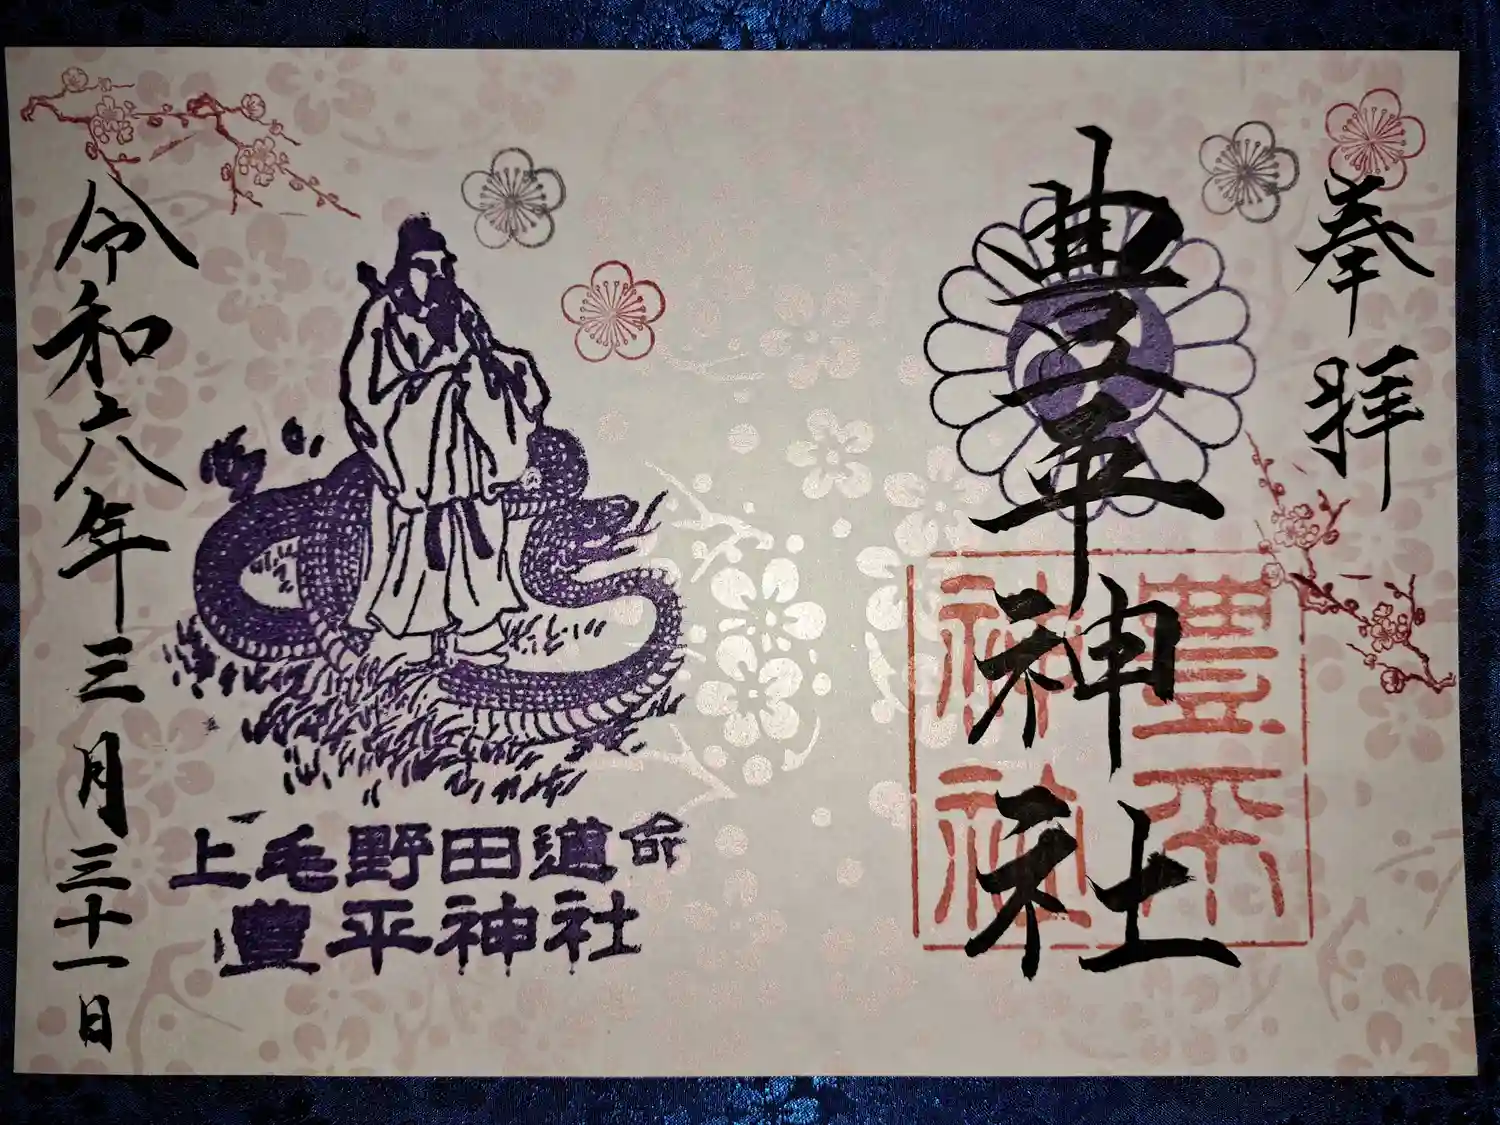 奉拝
豊平神社
豊平
神社
上毛野田道命
豊平神社
令和六年三月三十一日